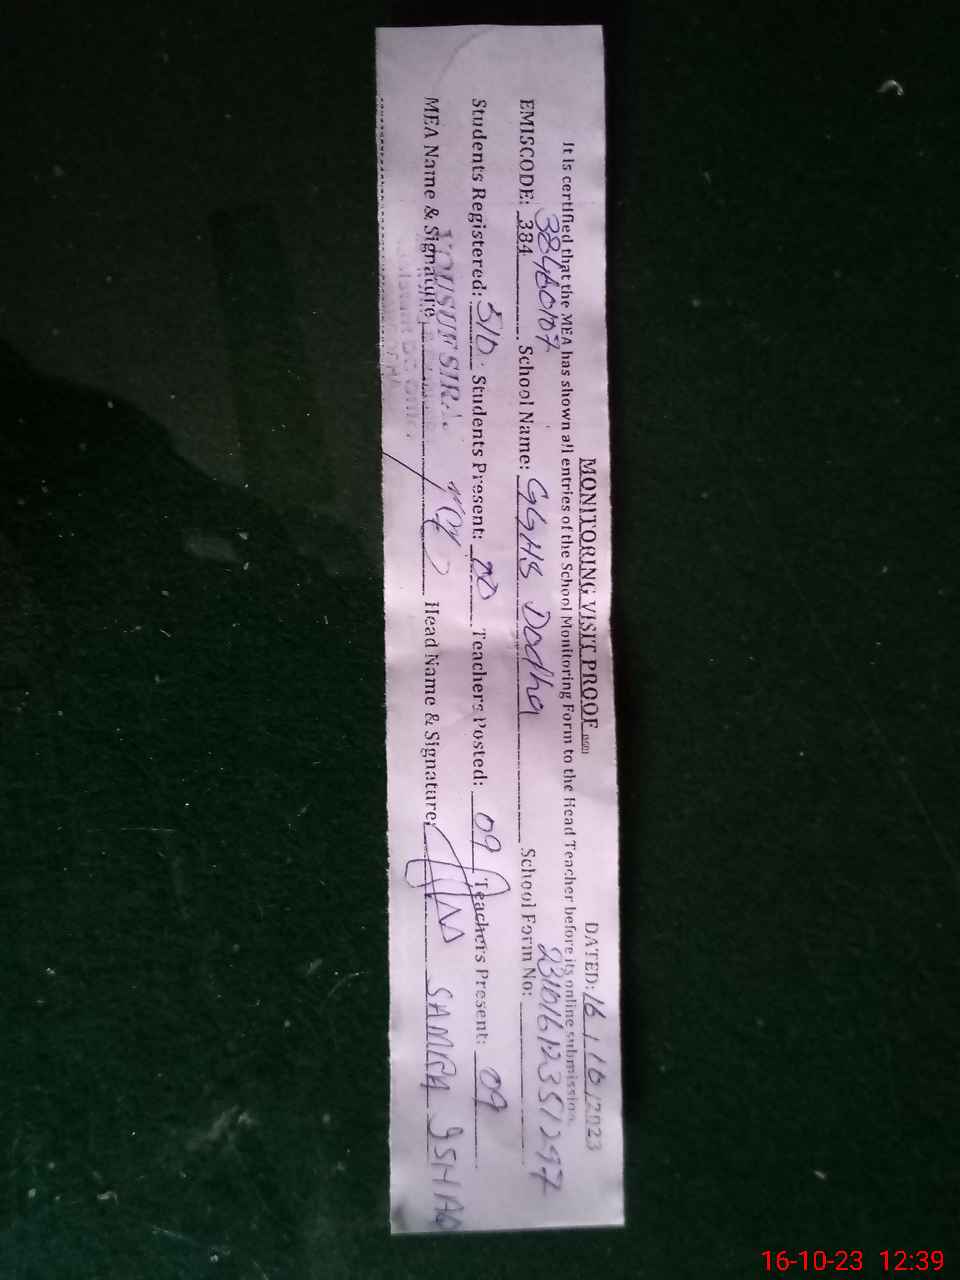 MONITORING VISIT PROOF DATED: 16/10/2023
It is certified that the MEA has shown all entries of the School Monitoring Form to the Head Teacher before its online submission.
38460107 23101612351297
EMISCODE: 384 School Name: GGHS Dodha School Form No:
Students Registered: 510 Students Present: 00 Teachers Posted: 09 Teachers Present: 09
MEA Name & Signature Head Name & Signature: SAMRA ISHAQ
16-10-23 12:39